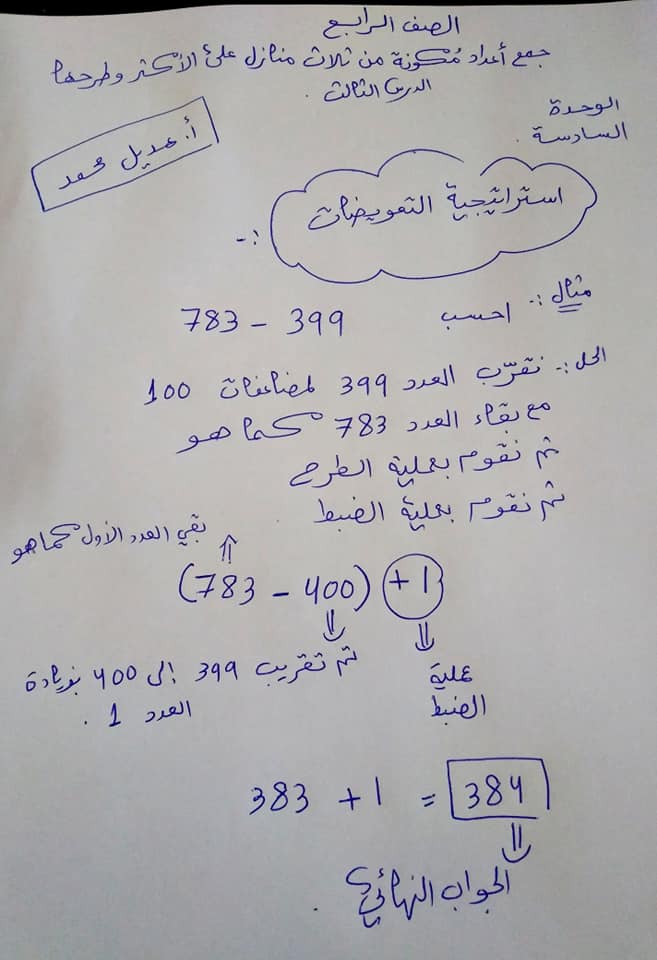 الصف الرابع
جمع أعداد مُكونة من ثلاث منازل على الأكثر وطرحها
الدرس الثالث.
الوحدة
السادسة.
أ. هديل محمد
استراتيجية التعويضات
:-
مثال :- احسب 783 - 399
الحل :- نقرّب العدد 399 لمضاعفات 100
مع بقاء العدد 783 كما هو
ثم نقوم بعملية الطرح
ثم نقوم بعملية الضبط
بقي العدد الأول كما هو
⇑
(783 - 400) +1
⇓ ⇓
تم تقريب 399 إلى 400 بزيادة
العدد 1.
عملية
الضبط
383 + 1 = 384
⇓
الجواب النهائي.